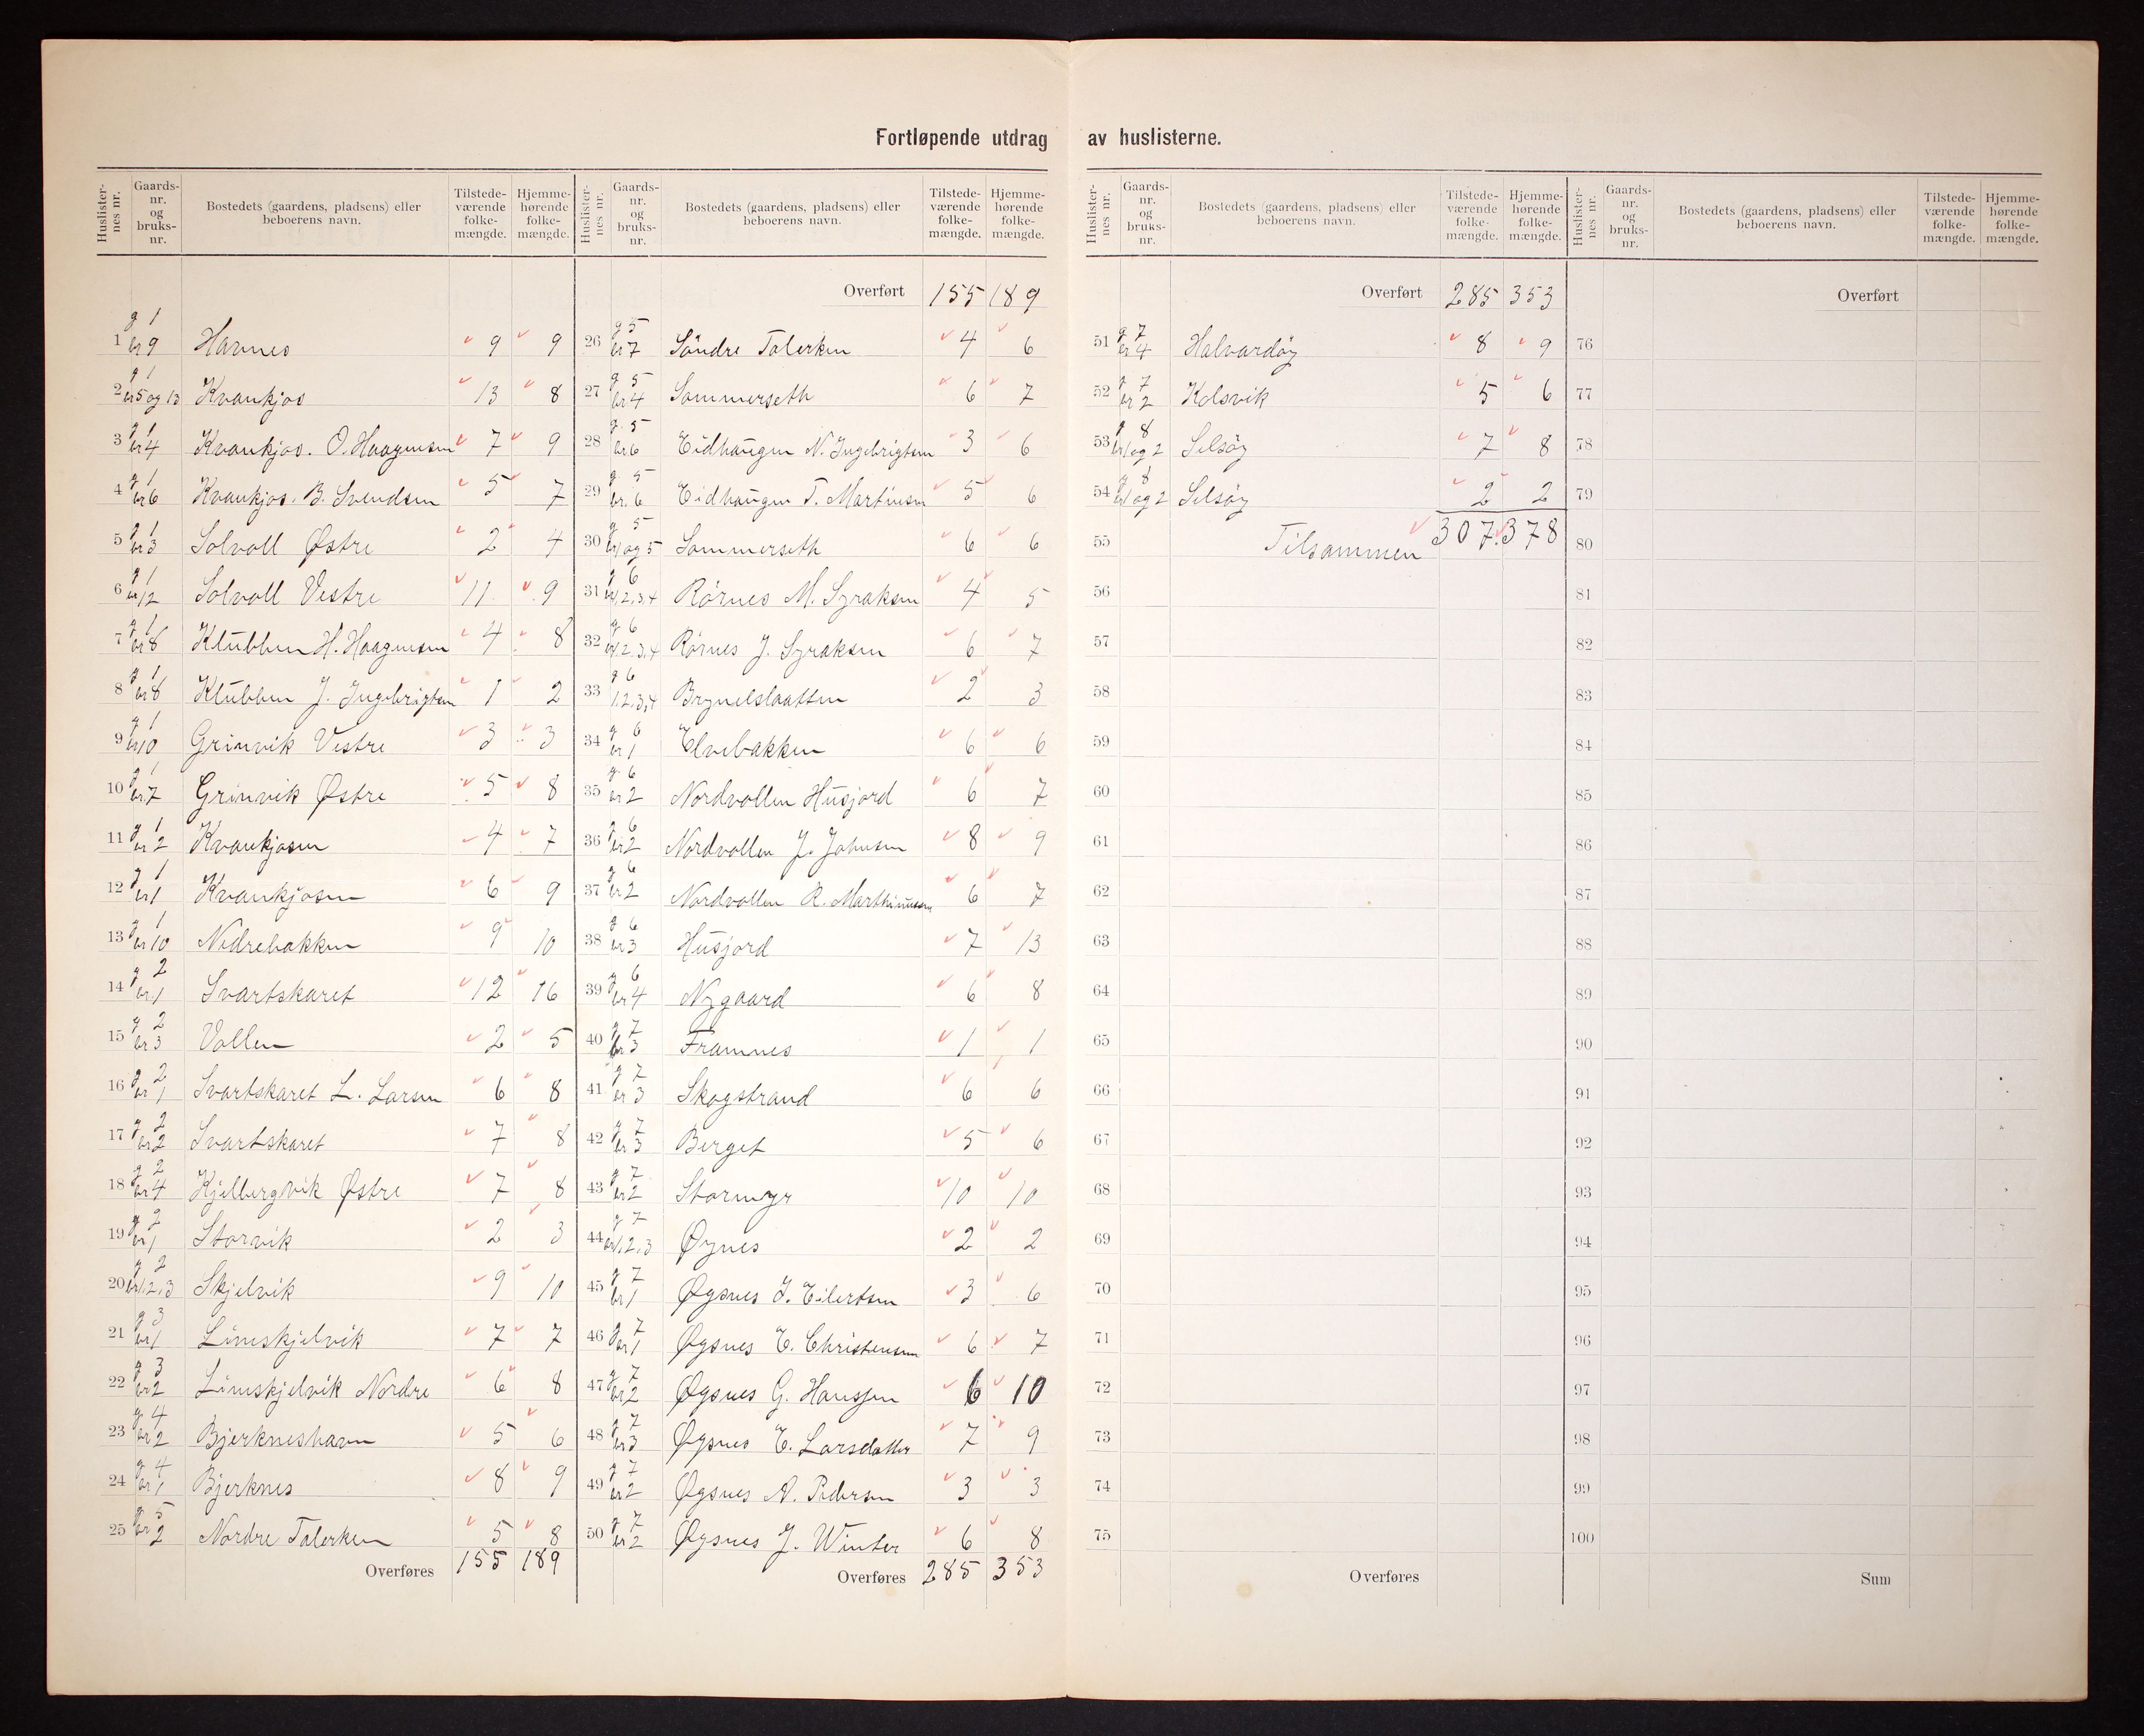 Fortløpende utdrag av huslisterne.
Huslister-nes nr. Gaards-nr. og bruks-nr. Bostedets (gaardens, pladsens) eller beboerens navn. Tilstede-værende folke-mængde. Hjemme-hørende folke-mængde.
1 g 1 br 9 Havnes 9 9
2 g 1 br 5 og 13 Kvankjos 13 8
3 g 1 br 4 Kvankjos. O. Haagensen 7 9
4 g 1 br 6 Kvankjos. B. Svendsen 5 7
5 g 1 br 3 Solvoll Østre 2 4
6 g 1 br 12 Solvoll Vestre 11 9
7 g 1 br 8 Klubben H. Haagensen 4 8
8 g 1 br 8 Klubben J. Ingebrigtsen 1 2
9 g 1 br 10 Grinvik Vestre 3 3
10 g 1 br 7 Grinvik Østre 5 8
11 g 1 br 2 Kvankjosen 4 7
12 g 1 br 1 Kvankjosen 6 9
13 g 1 br 10 Nedrebakken 9 10
14 g 2 br 1 Svartskaret 12 16
15 g 2 br 3 Vollen 2 5
16 g 2 br 1 Svartskaret L. Larsen 6 8
17 g 2 br 2 Svartskaret 7 8
18 g 2 br 4 Kjelbergvik Østre 7 8
19 g 2 br 1 Storvik 2 3
20 g 2 br 1,2,3 Skjelvik 9 10
21 g 3 br 1 Linnskjelvik 7 7
22 g 3 br 2 Linnskjelvik Nordre 6 8
23 g 4 br 2 Bjerkneshavn 5 6
24 g 4 br 1 Bjerknes 8 9
25 g 5 br 2 Nordre Tolerken 5 8
Overføres 155 189
Huslister-nes nr. Gaards-nr. og bruks-nr. Bostedets (gaardens, pladsens) eller beboerens navn. Tilstede-værende folke-mængde. Hjemme-hørende folke-mængde.
Overført 155 189
26 g 5 br 7 Söndre Tolerken 4 6
27 g 5 br 4 Sommerseth 6 7
28 g. 5 br 6 Eidhaugen N. Ingebrigtsen 3 6
29 g. 5 br. 6 Eidhaugen T. Martinsen 5 6
30 g 5 br 1 og 5 Sommerseth 6 6
31 g 6 br 1,2,3,4 Rörnes M. Syraksen 4 5
32 g 6 br 1,2,3,4 Rörnes J. Syraksen 6 7
33 g 6 1,2,3,4 Brynelslaatten 2 3
34 g 6 br 1 Elvebakken 6 6
35 g. 6 br 2 Nordvollen Husjord 6 7
36 g 6 br 2 Nordvollen J. Johnsen 8 9
37 g 6 br 2 Nordvollen R. Marthinussen 6 7
38 g 6 br 3 Husjord 7 13
39 g 6 br 4 Nygaard 6 8
40 g 7 br 3 Framnes 1 1
41 g 7 br 3 Skogstrand 6 6
42 g 7 br 3 Berget 5 6
43 g 7 br 2 Stormyr 10 10
44 g 7 br 1,2,3 Øynes 2 2
45 g 7 br 1 Øgsnes J. Eilertsen 3 6
46 g 7 br 1 Øgsnes E. Christensen 6 7
47 g 7 br 2 Øgsnes G. Hanssen 6 10
48 g 7 br 3 Øgsnes E. Larsdatter 7 9
49 g 7 br 2 Øgsnes A. Pedersen 3 3
50 g 7 br 2 Øgsnes J. Winter 6 8
Overføres 285 353
Huslister-nes nr. Gaards-nr. og bruks-nr. Bostedets (gaardens, pladsens) eller beboerens navn. Tilstede-værende folke-mængde. Hjemme-hørende folke-mængde.
Overført 285 353
51 g 7 br 4 Halvardöy 8 9
52 g 7 br 2 Kolsvik 5 6
53 g 8 br 1 og 2 Selsöy 7 8
54 g 8 br 1 og 2 Selsöy 2 2
55 Tilsammen 307 378
56
57
58
59
60
61
62
63
64
65
66
67
68
69
70
71
72
73
74
75
Overføres
Huslister-nes nr. Gaards-nr. og bruks-nr. Bostedets (gaardens, pladsens) eller beboerens navn. Tilstede-værende folke-mængde. Hjemme-hørende folke-mængde.
Overført
76
77
78
79
80
81
82
83
84
85
86
87
88
89
90
91
92
93
94
95
96
97
98
99
100
Sum